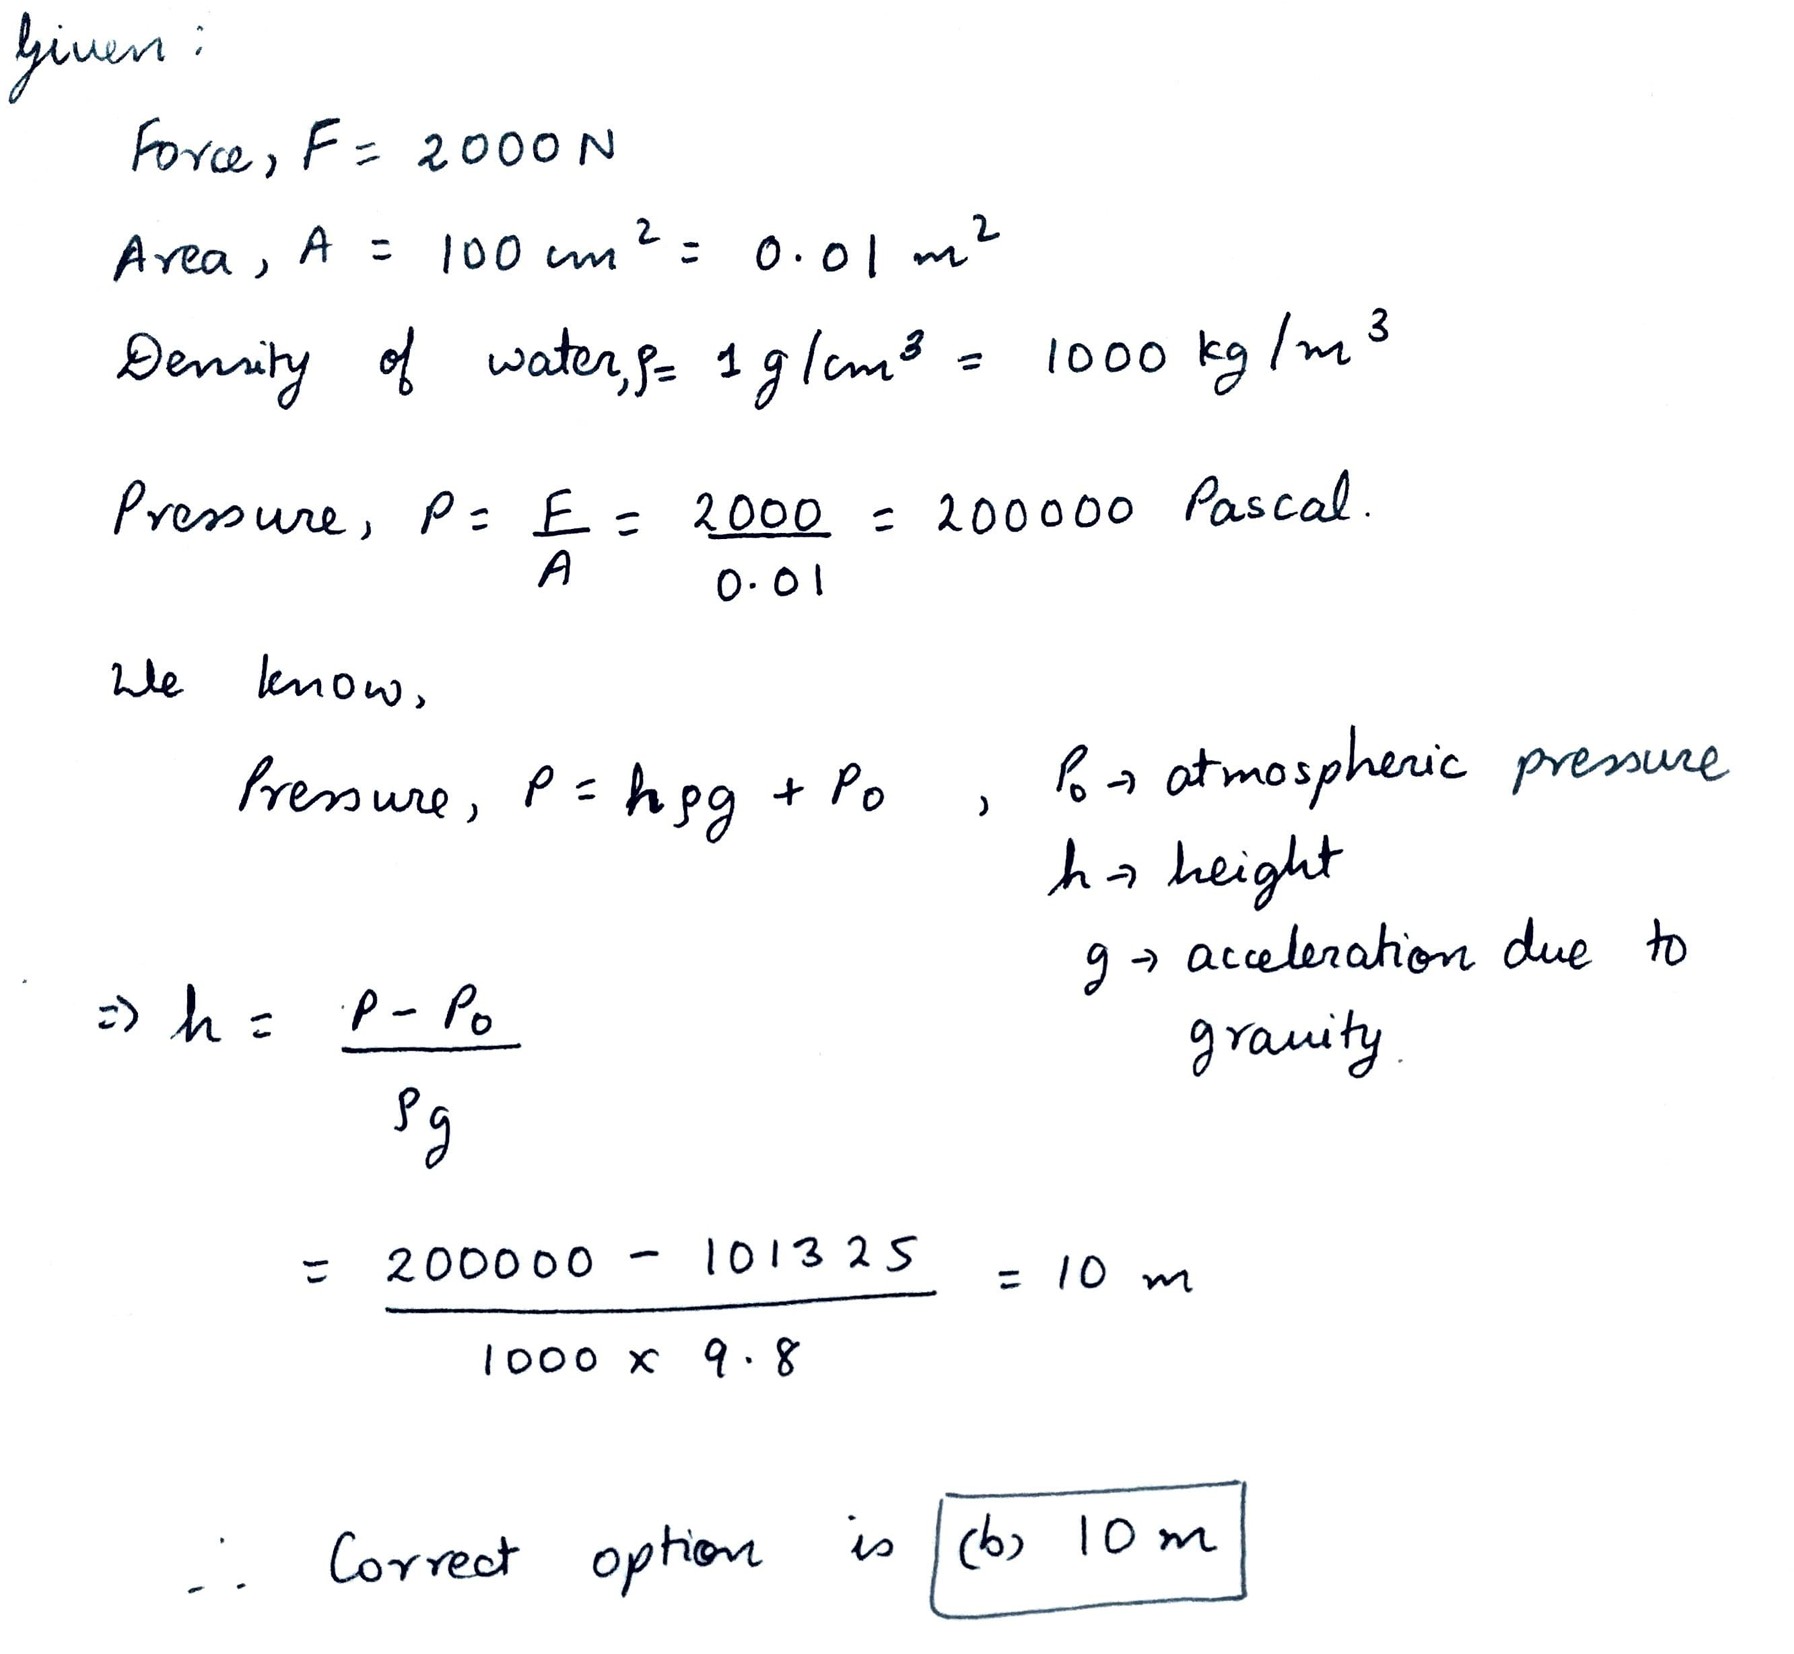 Given :
Force, F = 2000 N
Area, A = 100 cm² = 0.01 m²
Density of water, ρ = 1 g/cm³ = 1000 kg/m³
Pressure, P = F/A = 2000/0.01 = 200000 Pascal.
We know,
Pressure, P = hρg + P₀ , P₀ → atmospheric pressure
h → height
g → acceleration due to
gravity.
⇒ h = P - P₀ / ρg
= 200000 - 101325 / 1000 x 9.8 = 10 m
∴ Correct option is (b) 10 m